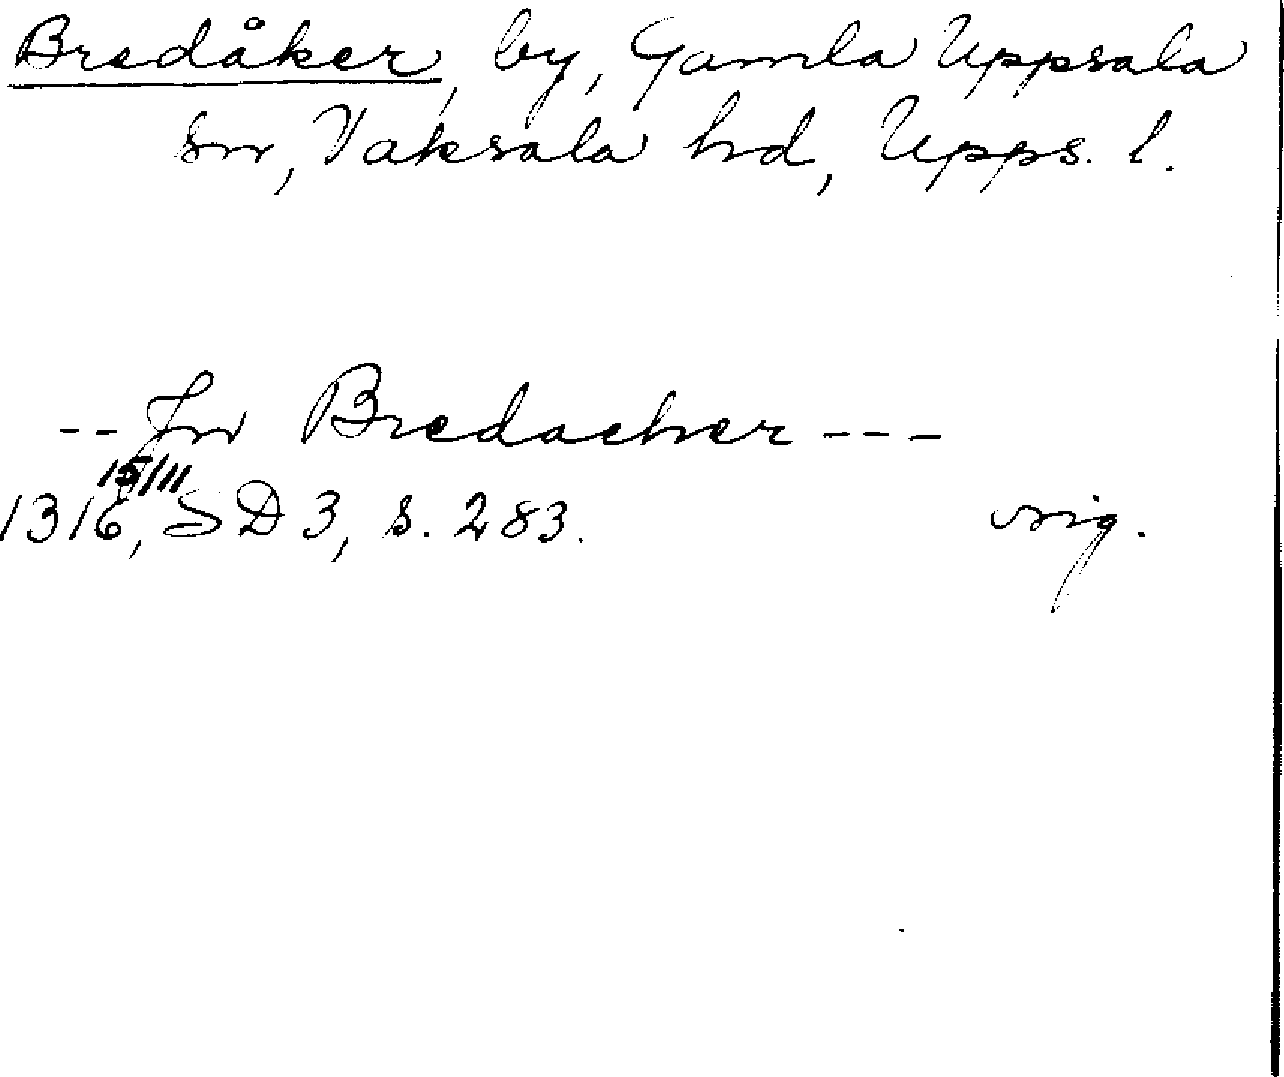 Bredåker, by, Gamla Uppsala
sn, Vaksala hd, Upps. l.
-- Jn Bredacher ---
15/11
1316, SD 3, s. 283. orig.